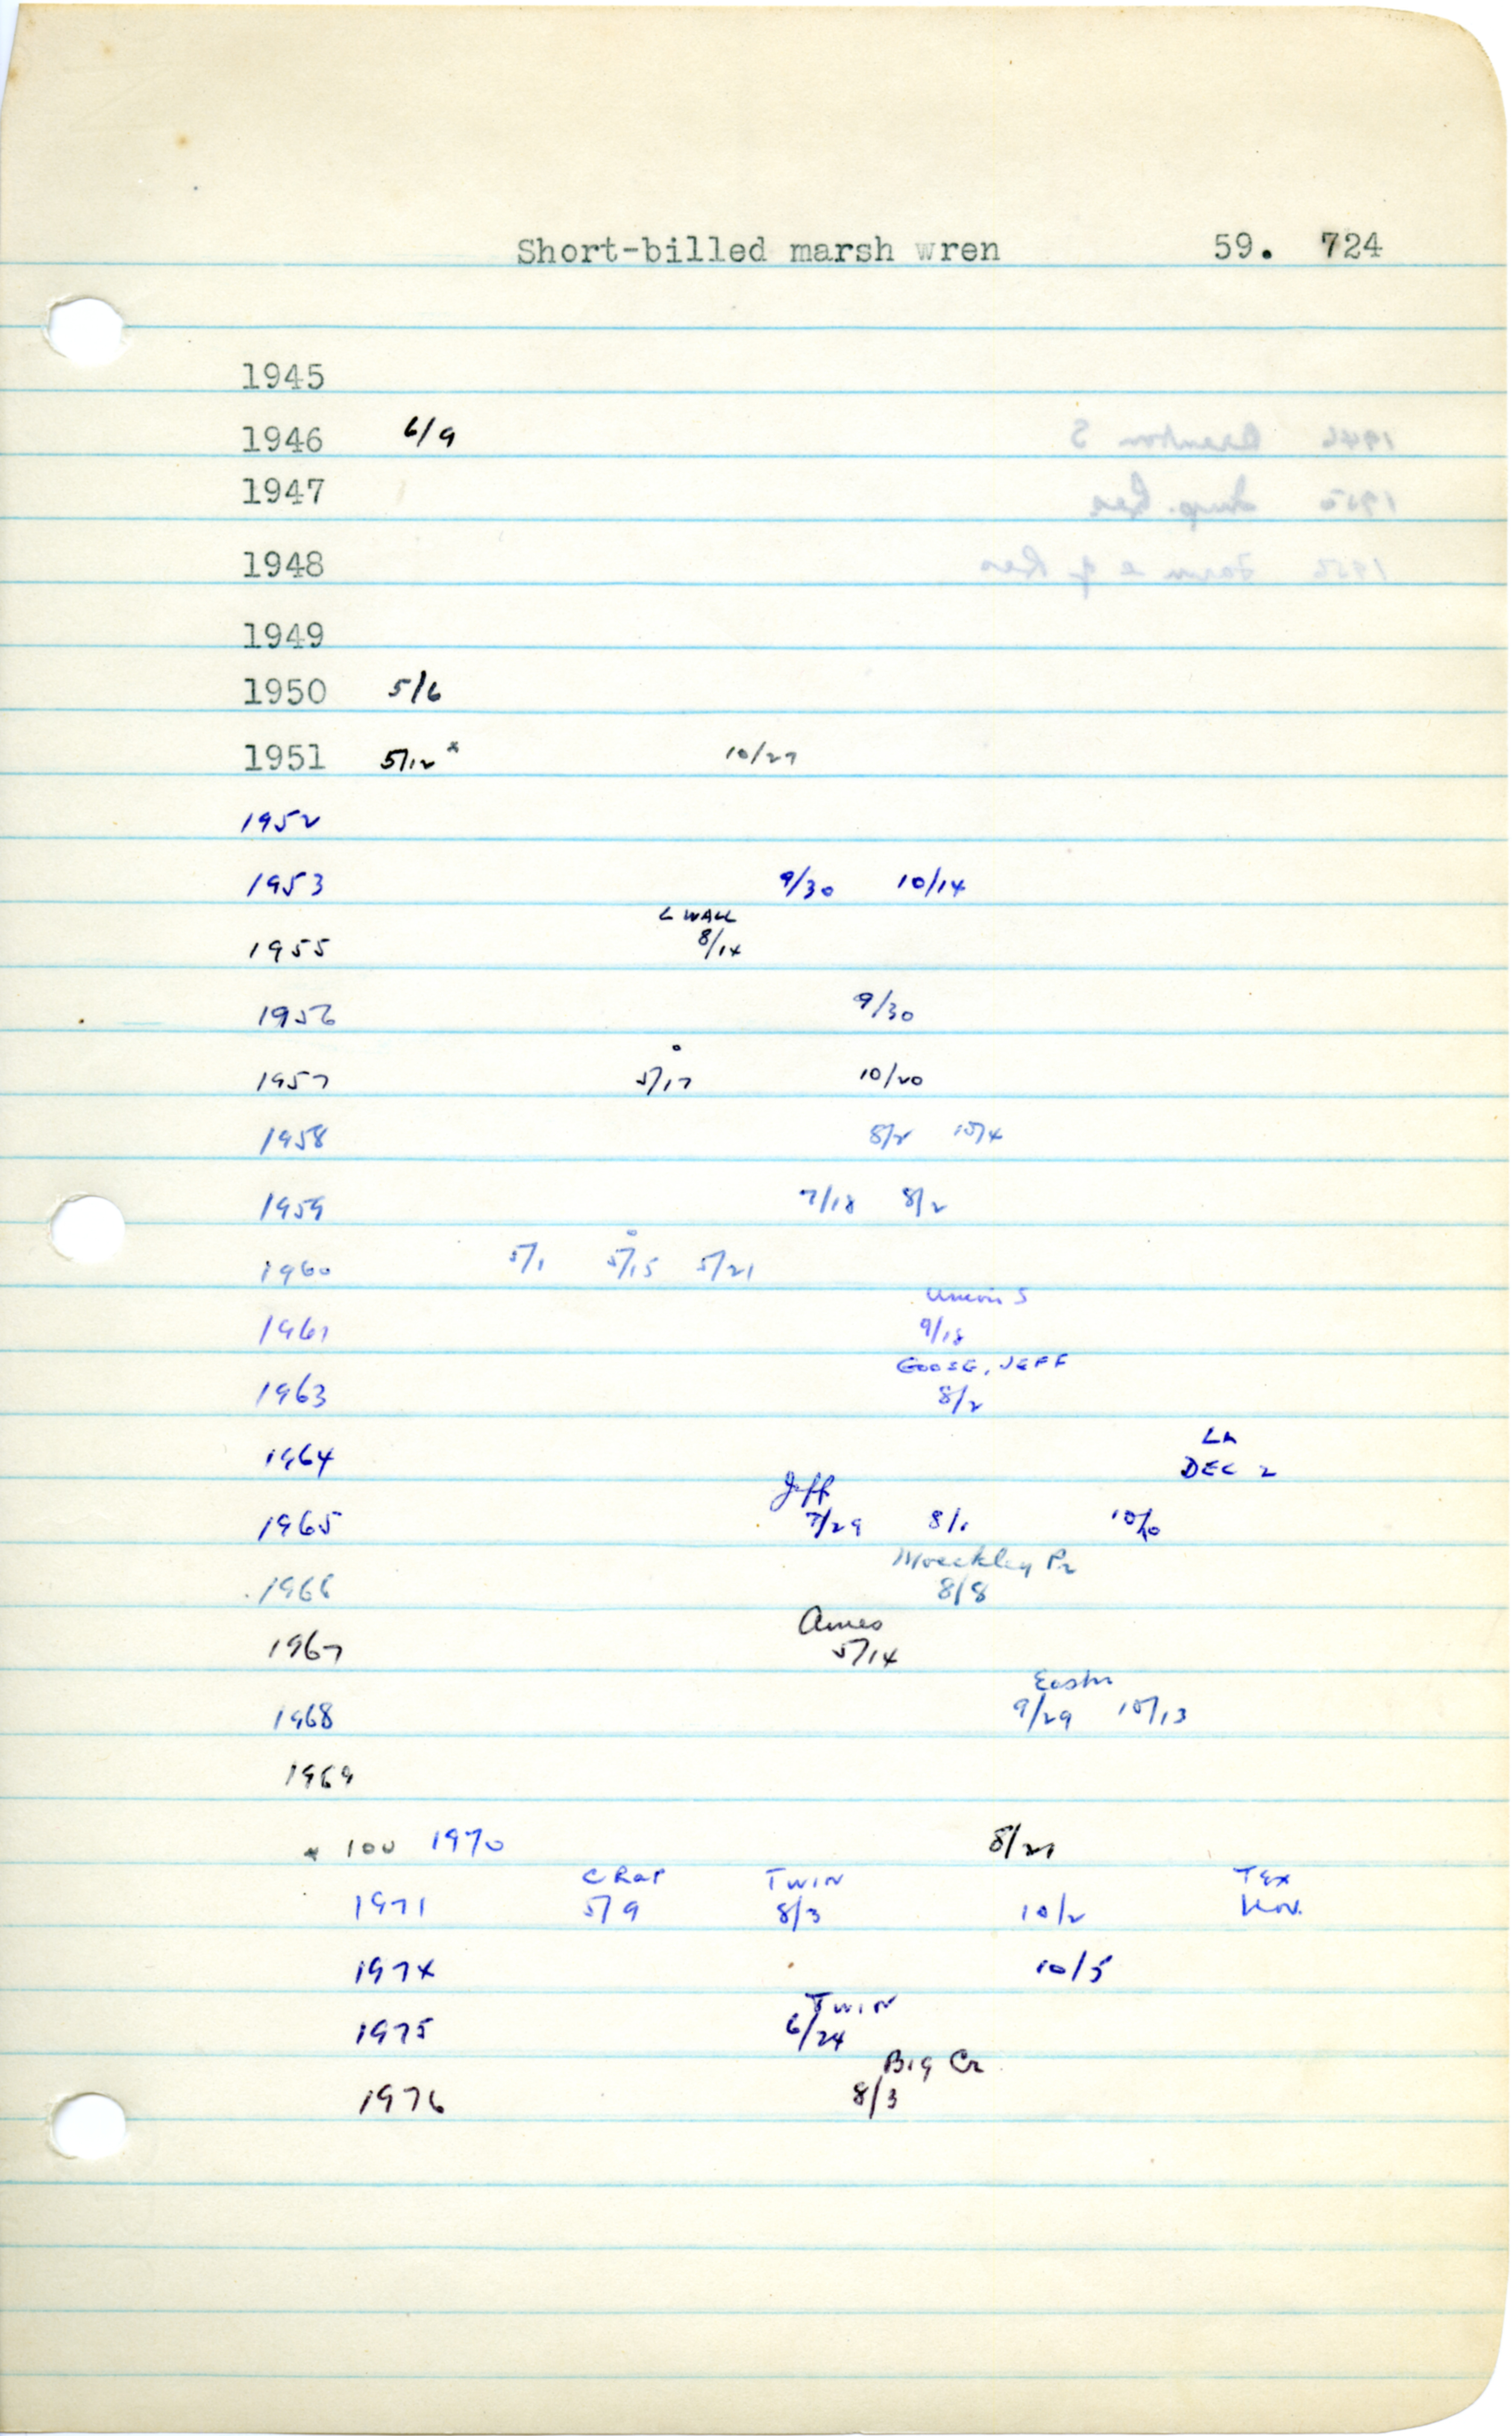 Short-billed marsh wren 59. 724
1945
1946 6/9
1947
1948
1949
1950 5/6
1951 5/12 * 10/27
1952
1953 9/30 10/14
L WALL
1955 8/14
1956 9/30
1957 5/17 10/20
1958 8/2 10/4
1959 7/18 8/2
1960 5/1 5/15 5/21
Union S
1961 9/18
GOOSE, JEFF
1963 8/2
LA
1964 DEC 2
Jeff
1965 7/29 8/1 10/10
Moeckley Pr
1966 8/8
Ames
1967 5/14
Easter
1968 9/29 10/13
1969
* 100 1970 8/21
C RAP TWIN TEX
1971 5/9 8/3 10/2 Nov.
1974 10/5
TWIN
1975 6/24
Big Cr
1976 8/3